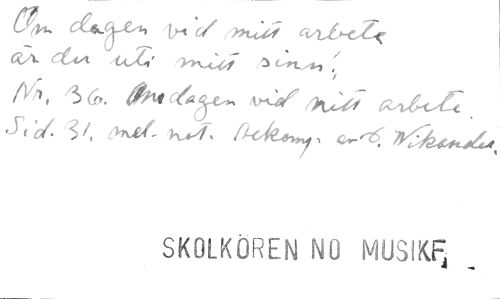 Om dagen vid mitt arbete
är du uti mitt sinn!,
Nr. 36. Om dagen vid mitt arbete.
Sid. 31. mel. not. av D. Wikander.
SKOLKÖREN NO MUSIKF